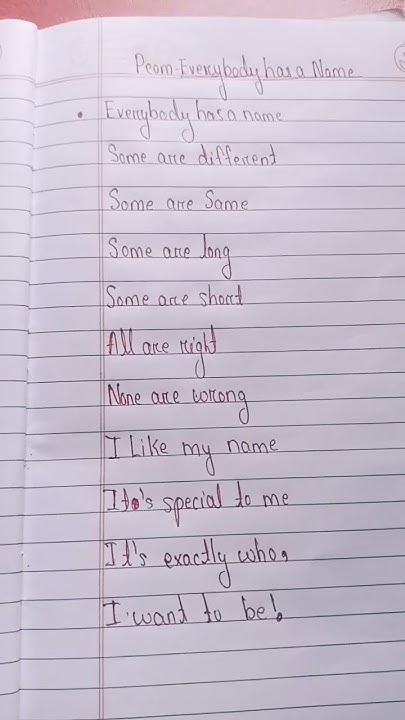 Peom-Everybody has a Name
Everybody has a name
Some are different
Some are Same
Some are long
Some are short
All are right
None are wrong
I Like my name
It's special to me
It's exactly who,
I want to be!